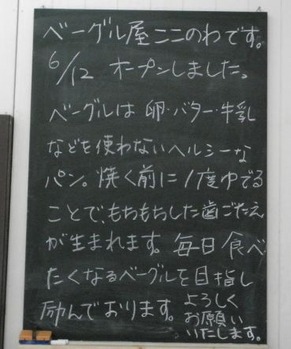 ベーグル屋ココのわです。
6/12 オープンしました。
ベーグルは 卵・バター・牛乳
などを使わないヘルシーな
パン。焼く前に1度ゆでる
ことでもちもちした歯ごたえ
が生まれます。毎日食べ
たくなるベーグルを目指し
励んでおります。よろしく
お願い
いたします。